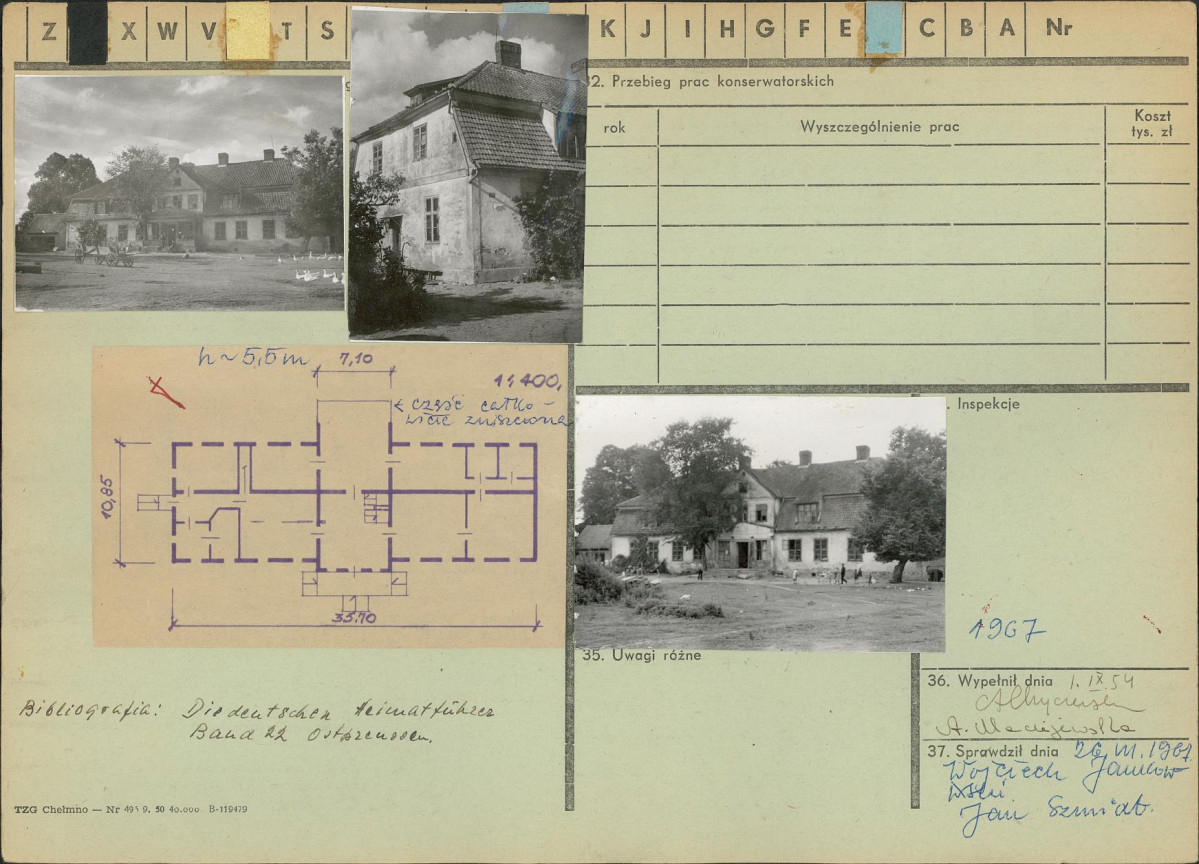 Z X W V T S K J I H G F E C B A Nr
32. Przebieg prac konserwatorskich
rok Wyszczególnienie prac Koszt
tys. zł
h ~ 5,5 m 7,10
1:400,
część całko-
wicie zniszczona
10,85
35.70
Inspekcje
1967
35. Uwagi różne
Bibliografia: Die deutschen Heimatführer
Band 22 Ostpreussen.
TZG Chełmno — Nr 495 9. 50 40.000 B-119479
36. Wypełnił dnia 1. IX.54
A. Maciejewska
37. Sprawdził dnia
Wojciech
Jan